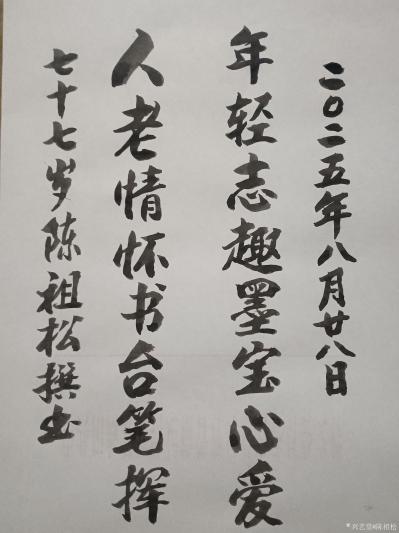 二〇二五年八月廿八日
年轻志趣墨宝心爱
人老情怀书台笔挥
七十七岁陈祖松撰书